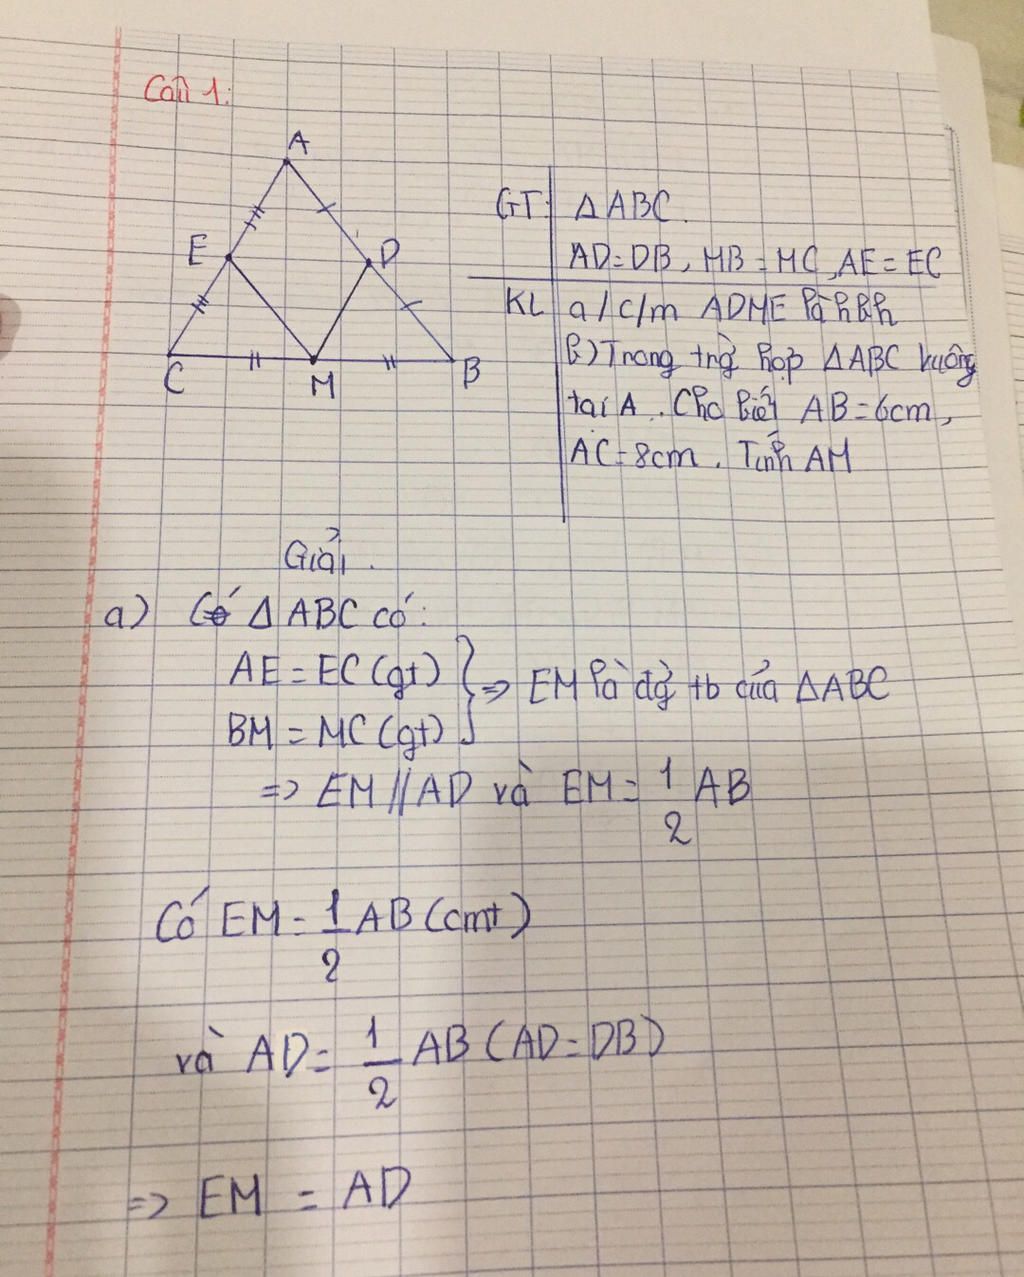 Câu 1:
A
E
D
C
M
B
GT: ΔABC.
AD=DB, MB=MC, AE=EC
KL a/ C/m ADME là hbh
b) Trong trg hợp ΔABC vuông
tại A. Cho biết AB=6cm,
AC=8cm. Tính AM
Giải.
a) Có ΔABC có:
AE=EC(gt)
BM=MC(gt)
} => EM là đg tb của ΔABC
=> EM//AD và EM=1/2 AB
Có EM=1/2 AB(cmt)
và AD=1/2 AB(AD=DB)
=> EM = AD